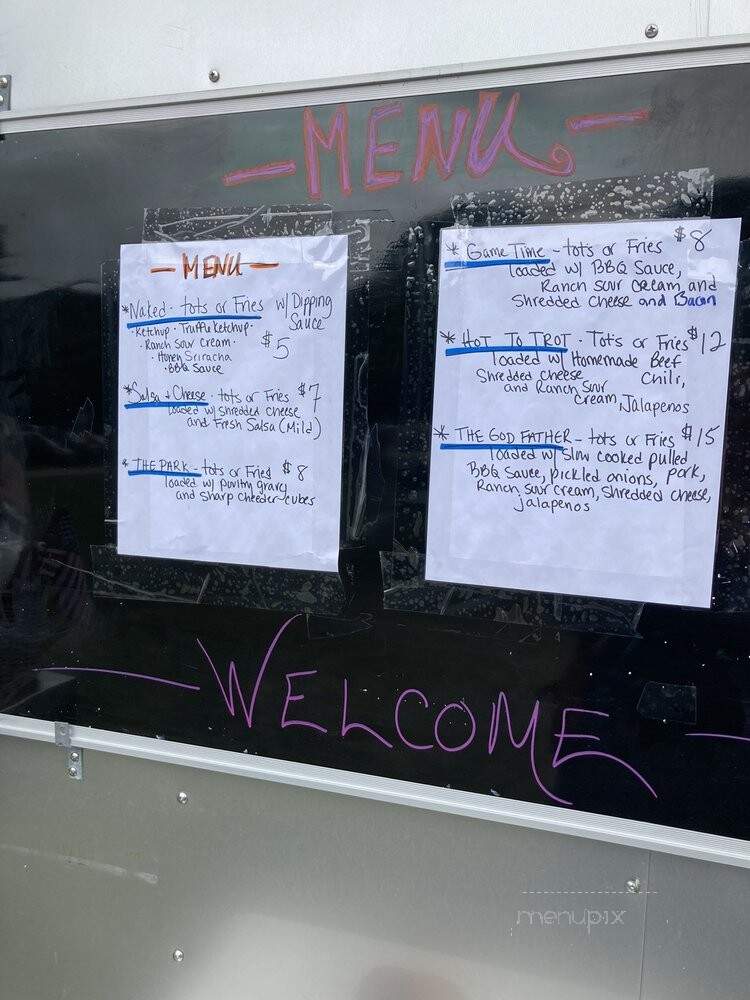 - MENU -
- MENU -
* Naked - tots or Fries w/ Dipping
Sauce
• Ketchup • Truffle Ketchup •
$5
• Ranch Sour Cream •
• Honey Sriracha
• BBQ Sauce
* Salsa + Cheese - tots or Fries $7
loaded w/ shredded cheese
and Fresh Salsa (Mild)
* THE PARK - tots or Fries $8
loaded w/ poultry gravy
and sharp cheeder-cubes
* Game Time - tots or Fries $8
loaded w/ BBQ Sauce,
Ranch sour cream, and
Shredded cheese and Bacon
* HOT TO TROT - Tots or Fries $12
loaded w/ Homemade Beef
Shredded cheese Chili,
and Ranch sour
cream, Jalapenos
* THE GOD FATHER - tots or Fries $15
loaded w/ Slow cooked pulled
BBQ Sauce, pickled onions, pork,
Ranch sour cream, shredded cheese,
jalapenos
WELCOME
menupix